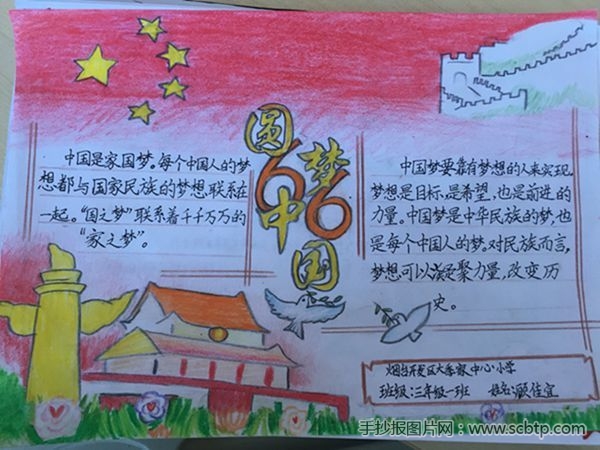 圆梦
66
中国
中国是家国梦。每个中国人的梦
想都与国家民族的梦想联系在
一起。“国之梦”联系着千千万万的
“家之梦”。
中国梦要靠有梦想的人来实现。
梦想是目标,是希望,也是前进的
力量。中国梦是中华民族的梦,也
是每个中国人的梦。对民族而言,
梦想可以凝聚力量,改变历
史。
烟台开发区大季家中心小学
班级:三年级一班 姓名:顾佳宜
手抄报图片网:www.scbtp.com